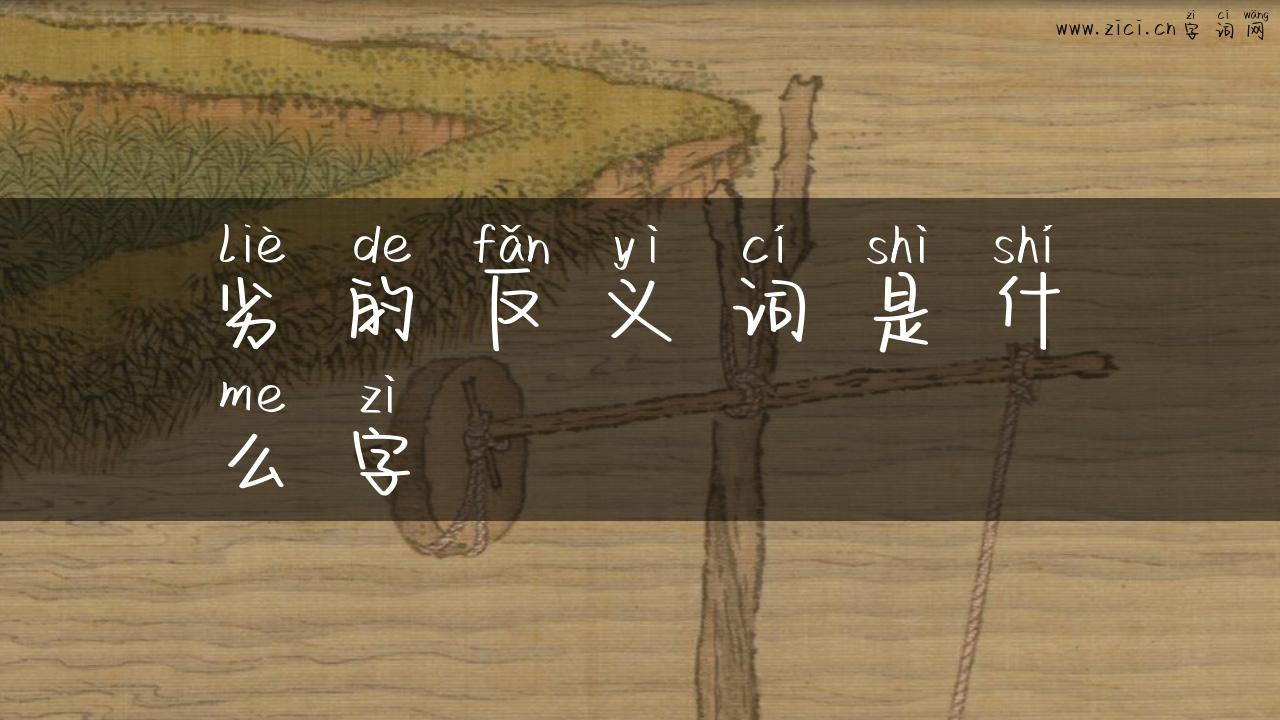 zì cí wǎng
www.zici.cn字词网
liè de fǎn yì cí shì shí
劣的反义词是什
me zì
么字